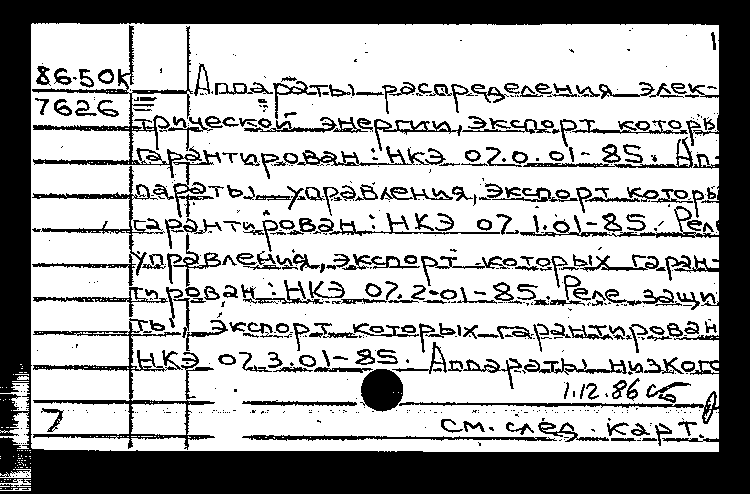 1
86-50к Аппараты распределения элек-
7626 трической энергии, экспорт которы
гарантирован: НКЭ 07.0.01-85. Ап-
параты управления, экспорт которы
гарантирован: НКЭ 07.1.01-85. Реле
управления, экспорт которых гаран-
тирован: НКЭ 07.2-01-85. Реле защи
ты, экспорт которых гарантирован
НКЭ 07.3.01-85. Аппараты низкого
1.12.86
7 см. след. карт.